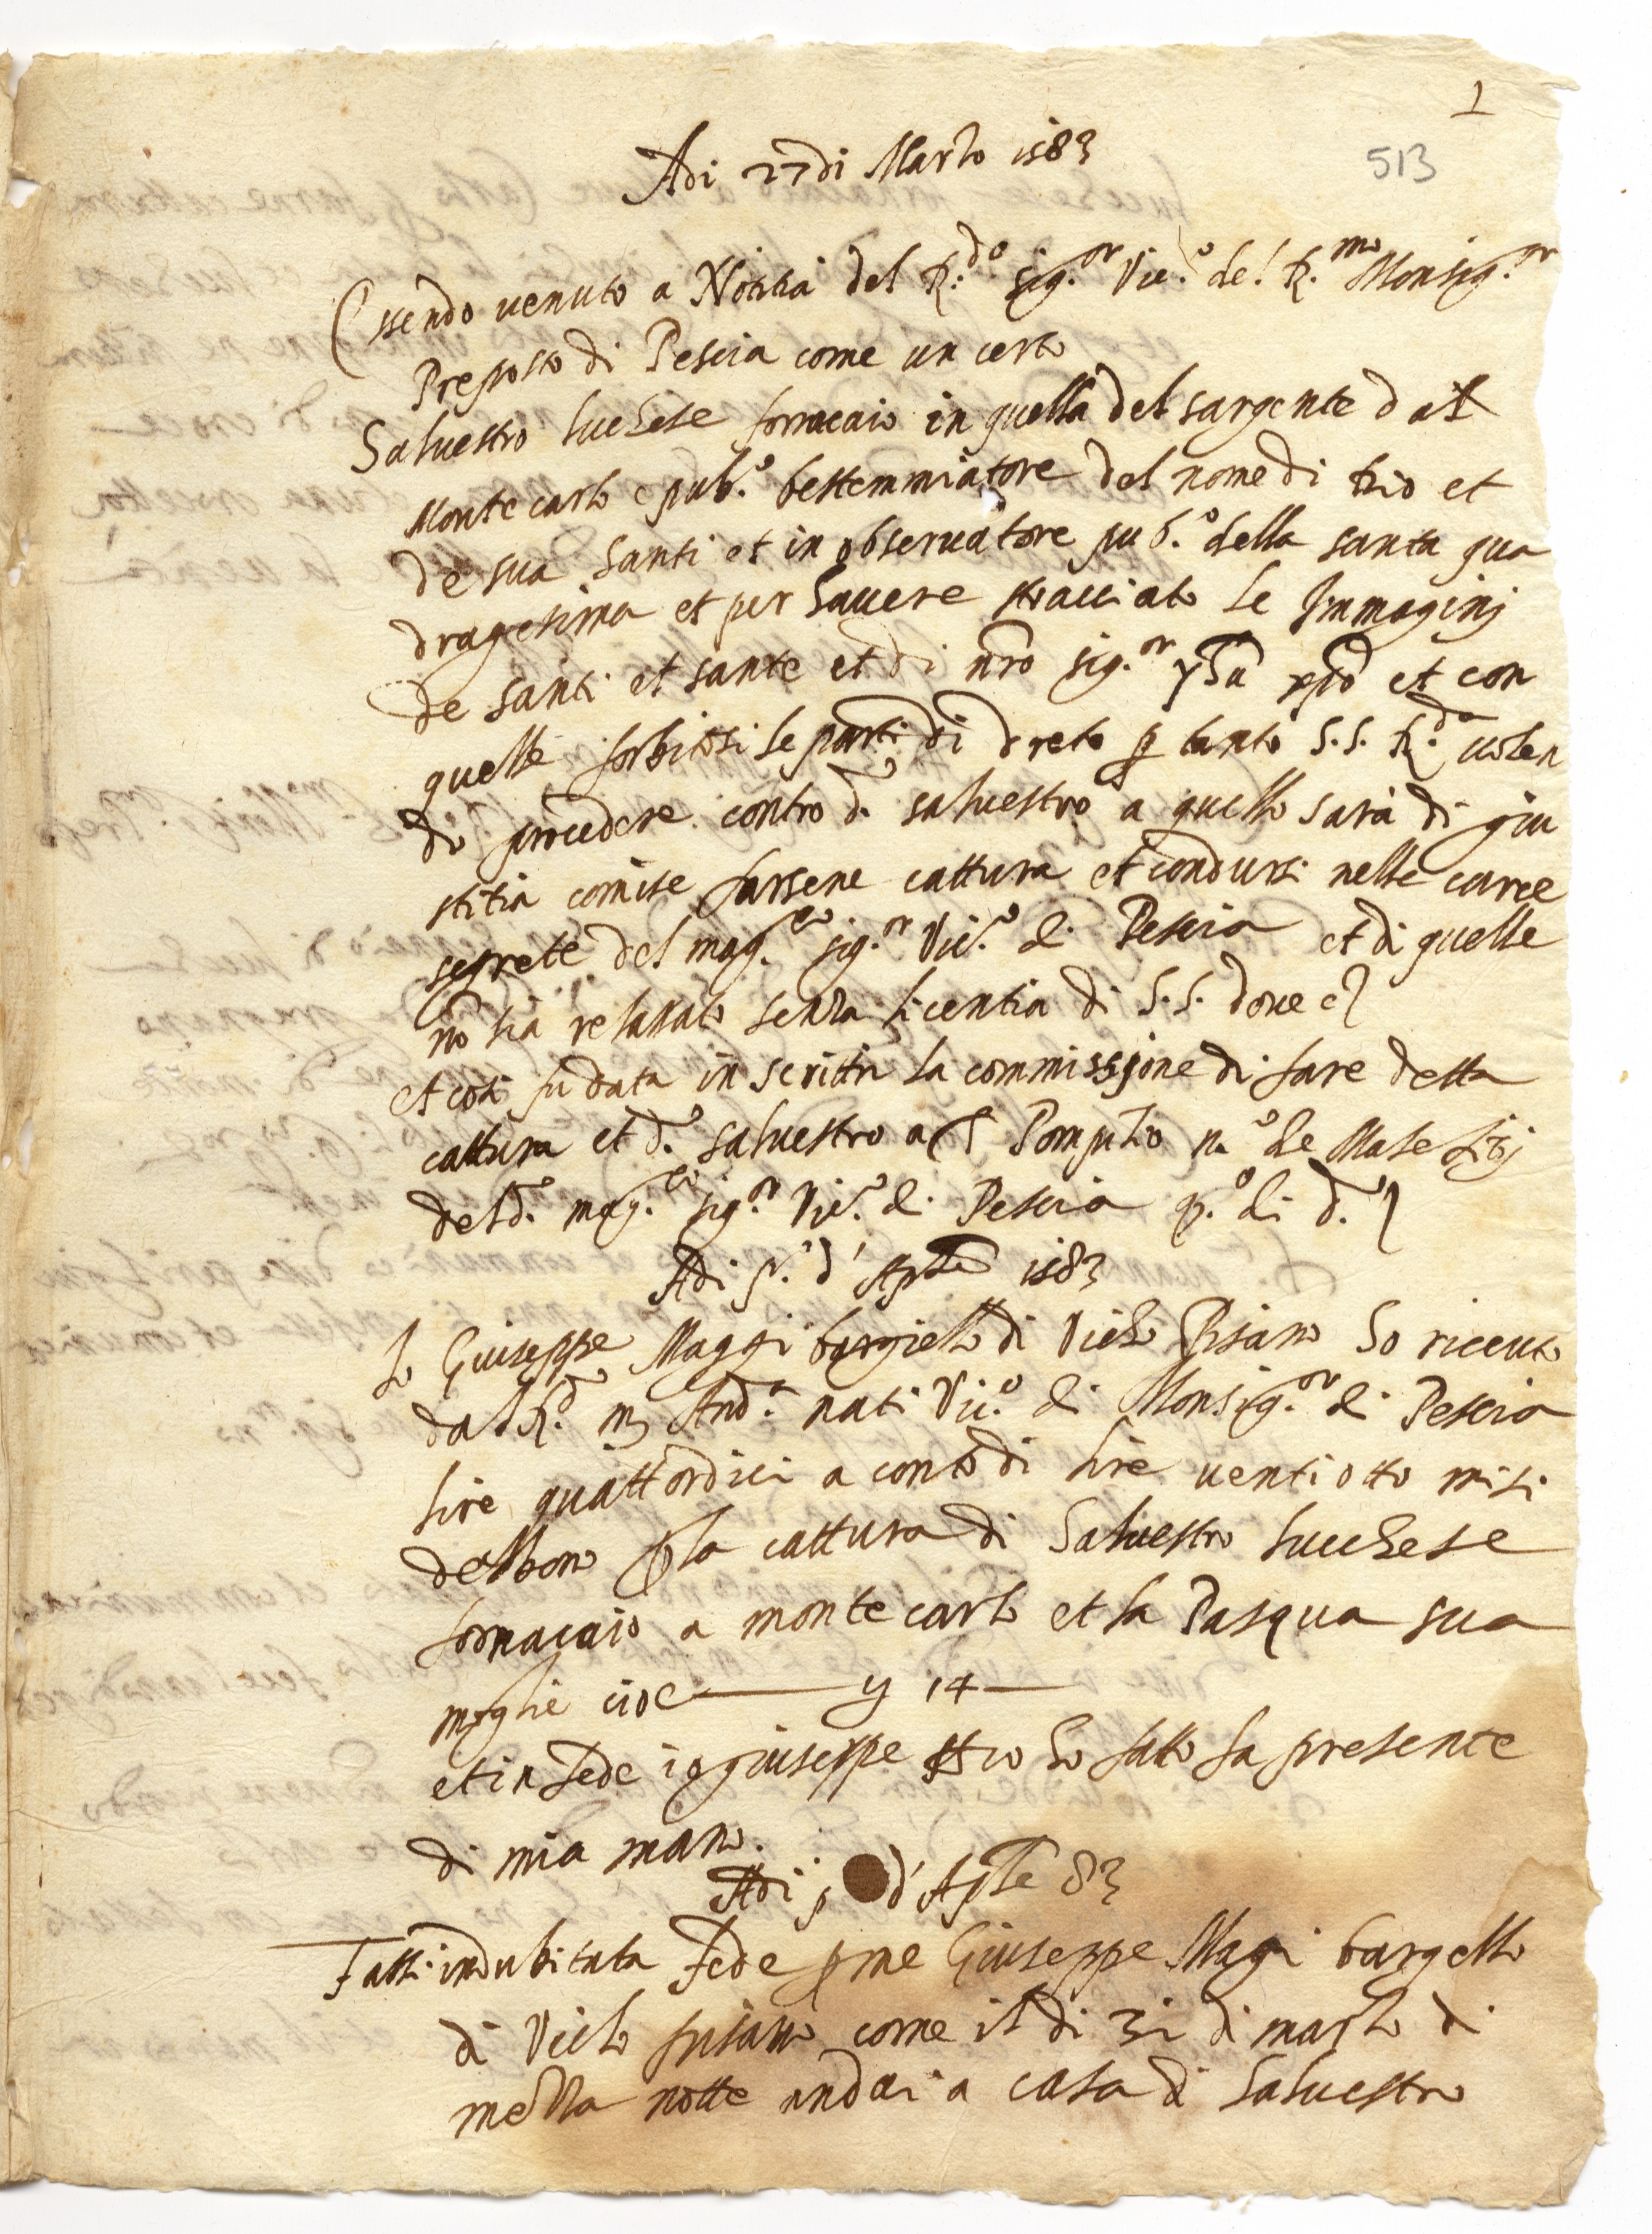 1
513
Adi 27 di Marzo 1583
Essendo venuto a Notitia del R.do sig.or Vic.o del R.mo Monsig.or
Preposto di Pescia come un certo
Saluestro luchese fornacaio in quella del sargente dal
Monte carlo e pub.o bestemmiatore del nome di Dio et
de sua Santi et in observatore pub.o della santa qua
dragesima et per havere stracciato le Immaginj
de santi et sante et di nro sig.or yhu xpo et con
quelle forbitosi le parti di dreto p tanto S.S. R.da volen
do procedere contro d.o saluestro a quello sarà di giu
stitia comise farsene cattura et condursi nelle carce
segrete del mag.co sig.or Vic.o di Pescia et di quelle
no sia relassato senza licentia di S.S. dove
et cosi fu data in scritti la commissione di fare detta
cattura et d.o saluestro a Pompilio n.o de Malefizj
del d.o mag.co sig.or Vic.o di Pescia q.o di d.o
Adi p.o d'Aple 1583
Io Giuseppe Maggi bargiello di Vicho Pisano ho riceuto
dal R.do m And.a nati Vic.o di Monsig.or di Pescia
lire quattordici a conto di lire ventiotto mi si
debbono p la cattura di Saluestro lucchese
fornacaio a monte carlo et la Pasqua sua
moglie cioe 14
et in fede io giuseppe sto ho fatto la presente
di mia mano.
Adi p d'Aple 83
Fassi indubitata fede p me Giuseppe Magi bargello
di Vicho pisano come il di 31 di marzo di
mezza notte andai a casa di Saluestro